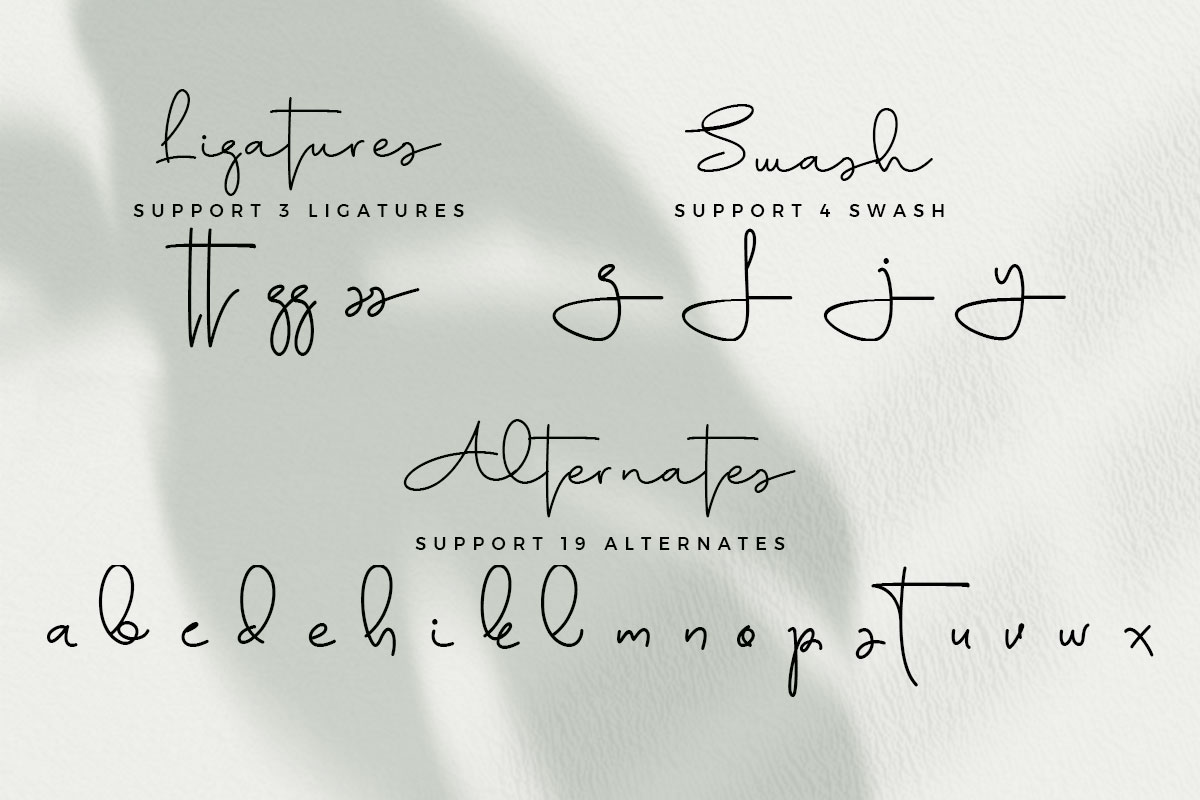 Ligatures
SUPPORT 3 LIGATURES
tt gg ss
Swash
SUPPORT 4 SWASH
g f j y
Alternates
SUPPORT 19 ALTERNATES
a b c d e h i k l m n o p s t u v w x